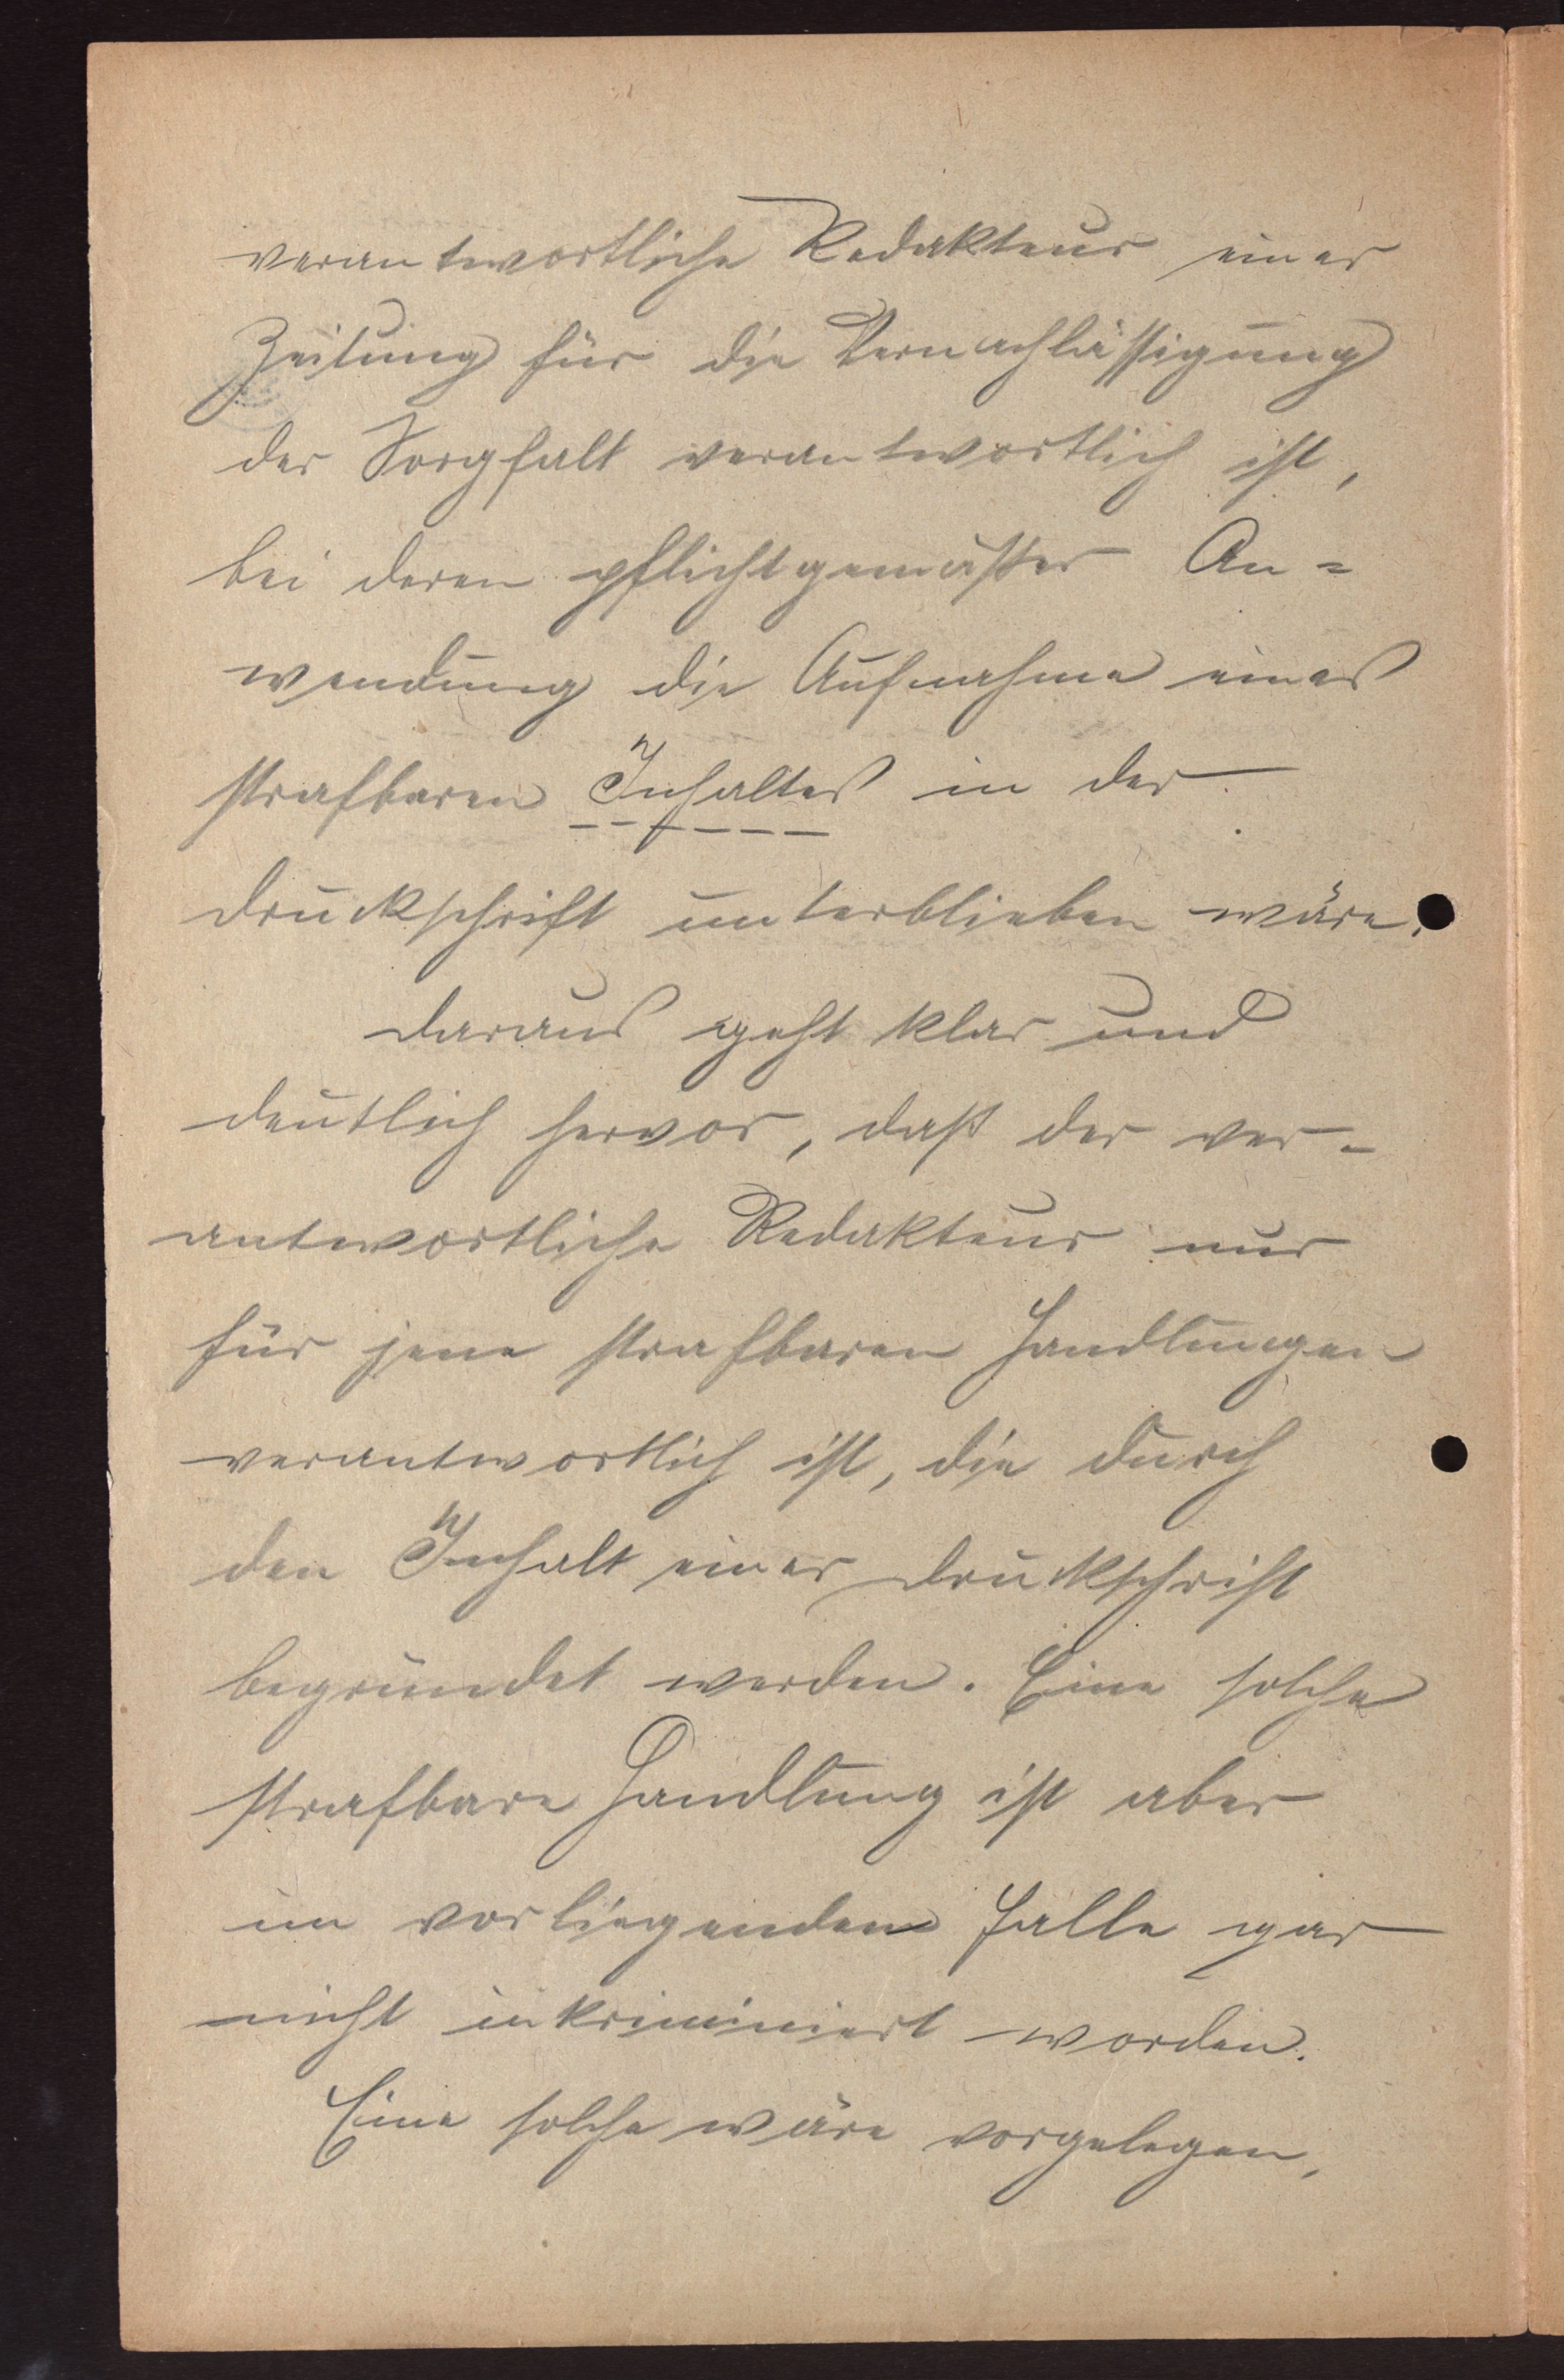 verantwortliche Redakteur einer
Zeitung für die Vernachlässigung
der Sorgfalt verantwortlich ist,
bei deren pflichtgemäßer An=
wendung die Aufnahme eines
strafbaren Inhaltes in der
Druckschrift unterblieben wäre.
Daraus geht klar und
deutlich hervor, daß der ver-
antwortliche Redakteur nur
für jene strafbaren Handlungen
verantwortlich ist, die durch
den Inhalt einer Druckschrift
begründet werden. Eine solche
strafbare Handlung ist aber
im vorliegenden Falle gar
nicht inkriminiert worden.
Eine solche wäre vorgelegen,